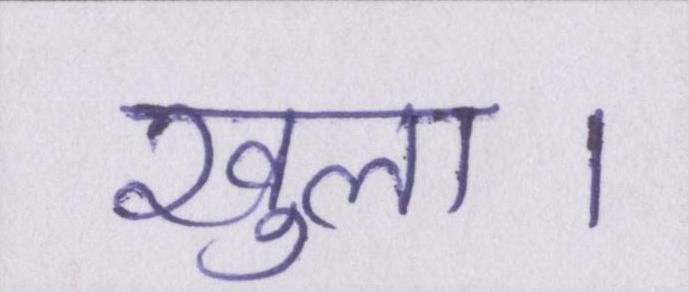 खुला ।